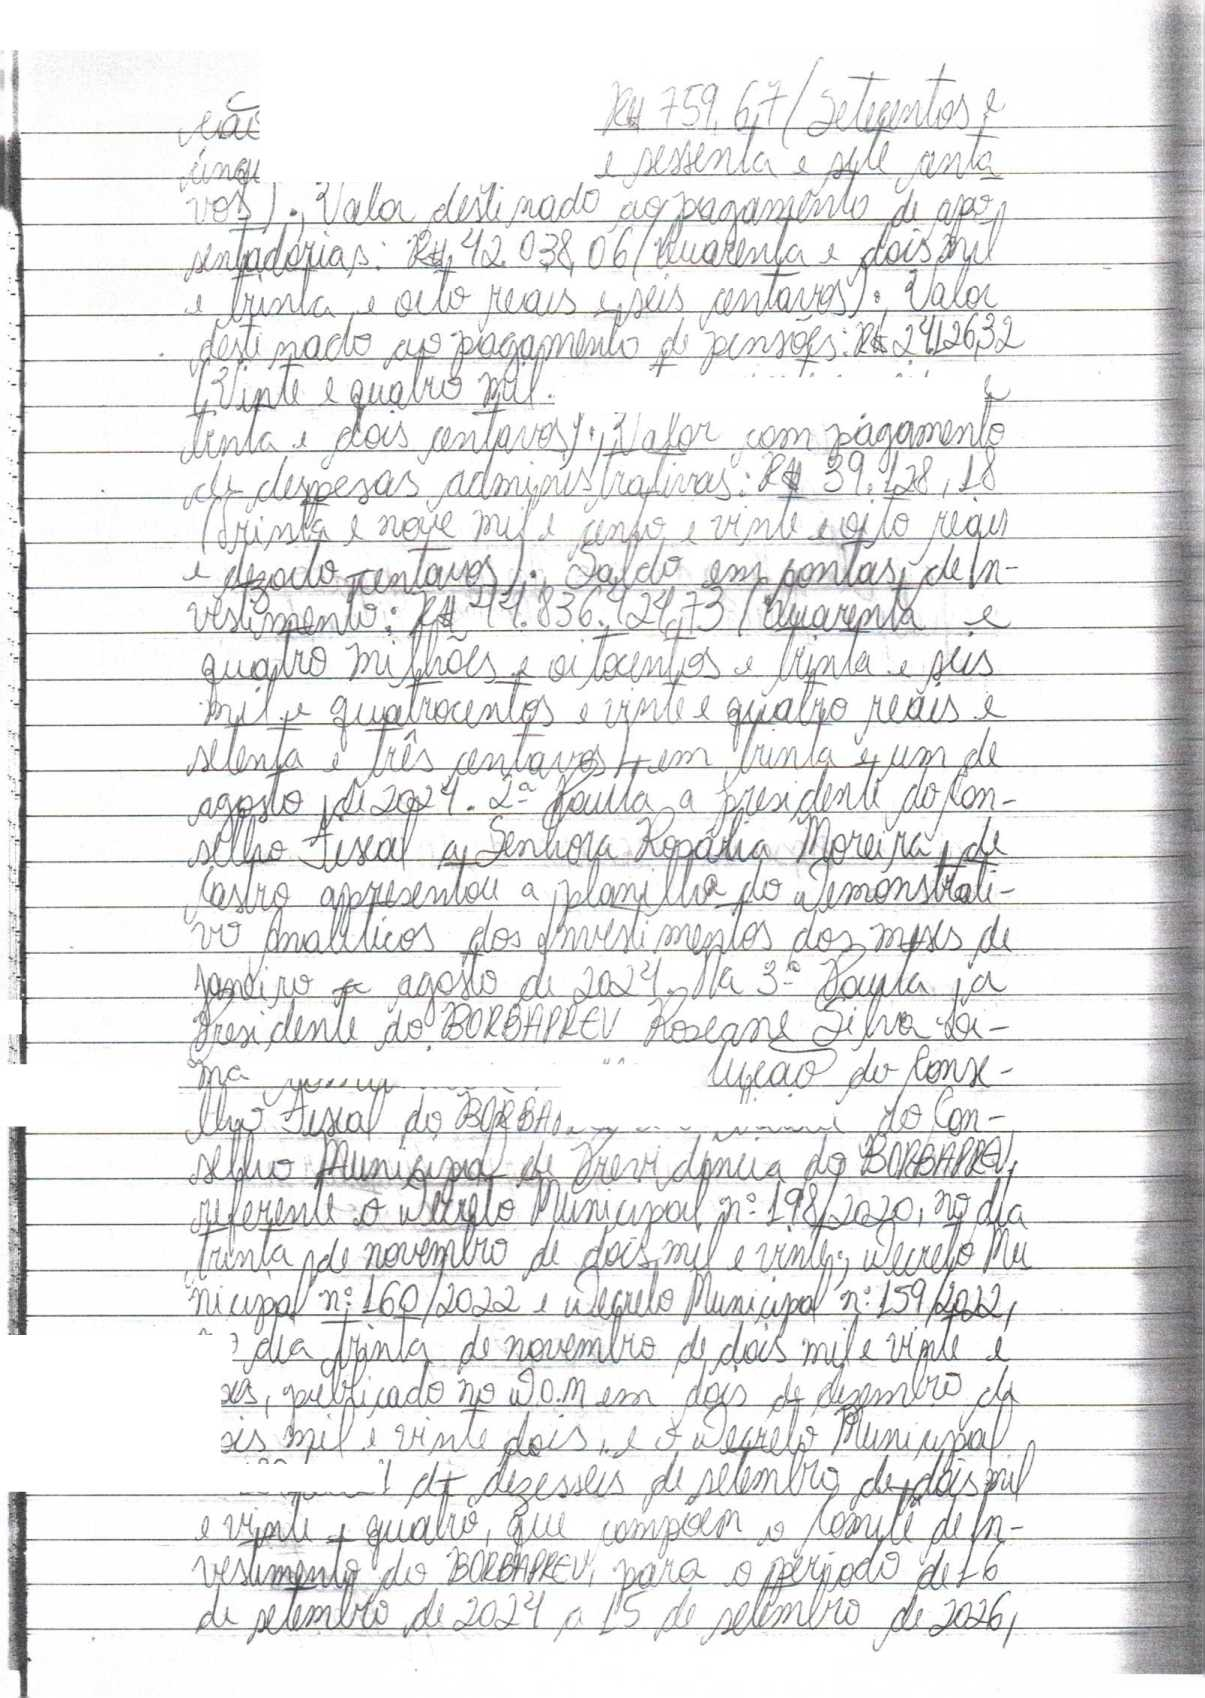 não R$ 759,67 (Setecentos e
cinqu e sessenta e sete centa
vos).; Valor destinado ao pagamento de apo
sentadorias: R$ 42.038,06 (Quarenta e dois mil
e trinta e oito reais e seis centavos).; Valor
destinado ao pagamento de pensões: R$ 24.126,32
(Vinte e quatro mil e
trinta e dois centavos).; Valor com pagamento
de despesas administrativas: R$ 39.128,18
(Trinta e nove mil e cento e vinte e oito reais
e dezoito centavos).; Saldo em contas de In-
vestimento: R$ 44.836.424,73 (Quarenta e
quatro milhões e oitocentos e trinta e seis
mil e quatrocentos e vinte e quatro reais e
setenta e três centavos) em trinta e um de
agosto de 2024. 2ª Pauta a presidente do Con-
selho Fiscal a Senhora Rosária Moreira de
Castro apresentou a planilha do Demonstrati-
vo Analíticos dos Investimentos dos meses de
janeiro a agosto de 2024. Na 3ª Pauta a
Presidente do BORBAPREV Roseane Silva Li-
ma do Conse-
lho Fiscal do BORBA do Con-
selho Municipal de Previdência do BORBAPREV,
referente o Decreto Municipal nº 198/2020, no dia
trinta de novembro de dois mil e vinte; Decreto Mu
nicipal nº 160/2022 e Decreto Municipal nº 159/2022,
dia trinta de novembro de dois mil e vinte e
publicado no D.O.M em dois de dezembro de
mil e vinte dois, e o Decreto Municipal
de dezesseis de setembro de dois mil
e vinte e quatro, que compõem o Comitê de In-
vestimento do BORBAPREV, para o período de 16
de setembro de 2024 a 15 de setembro de 2026,